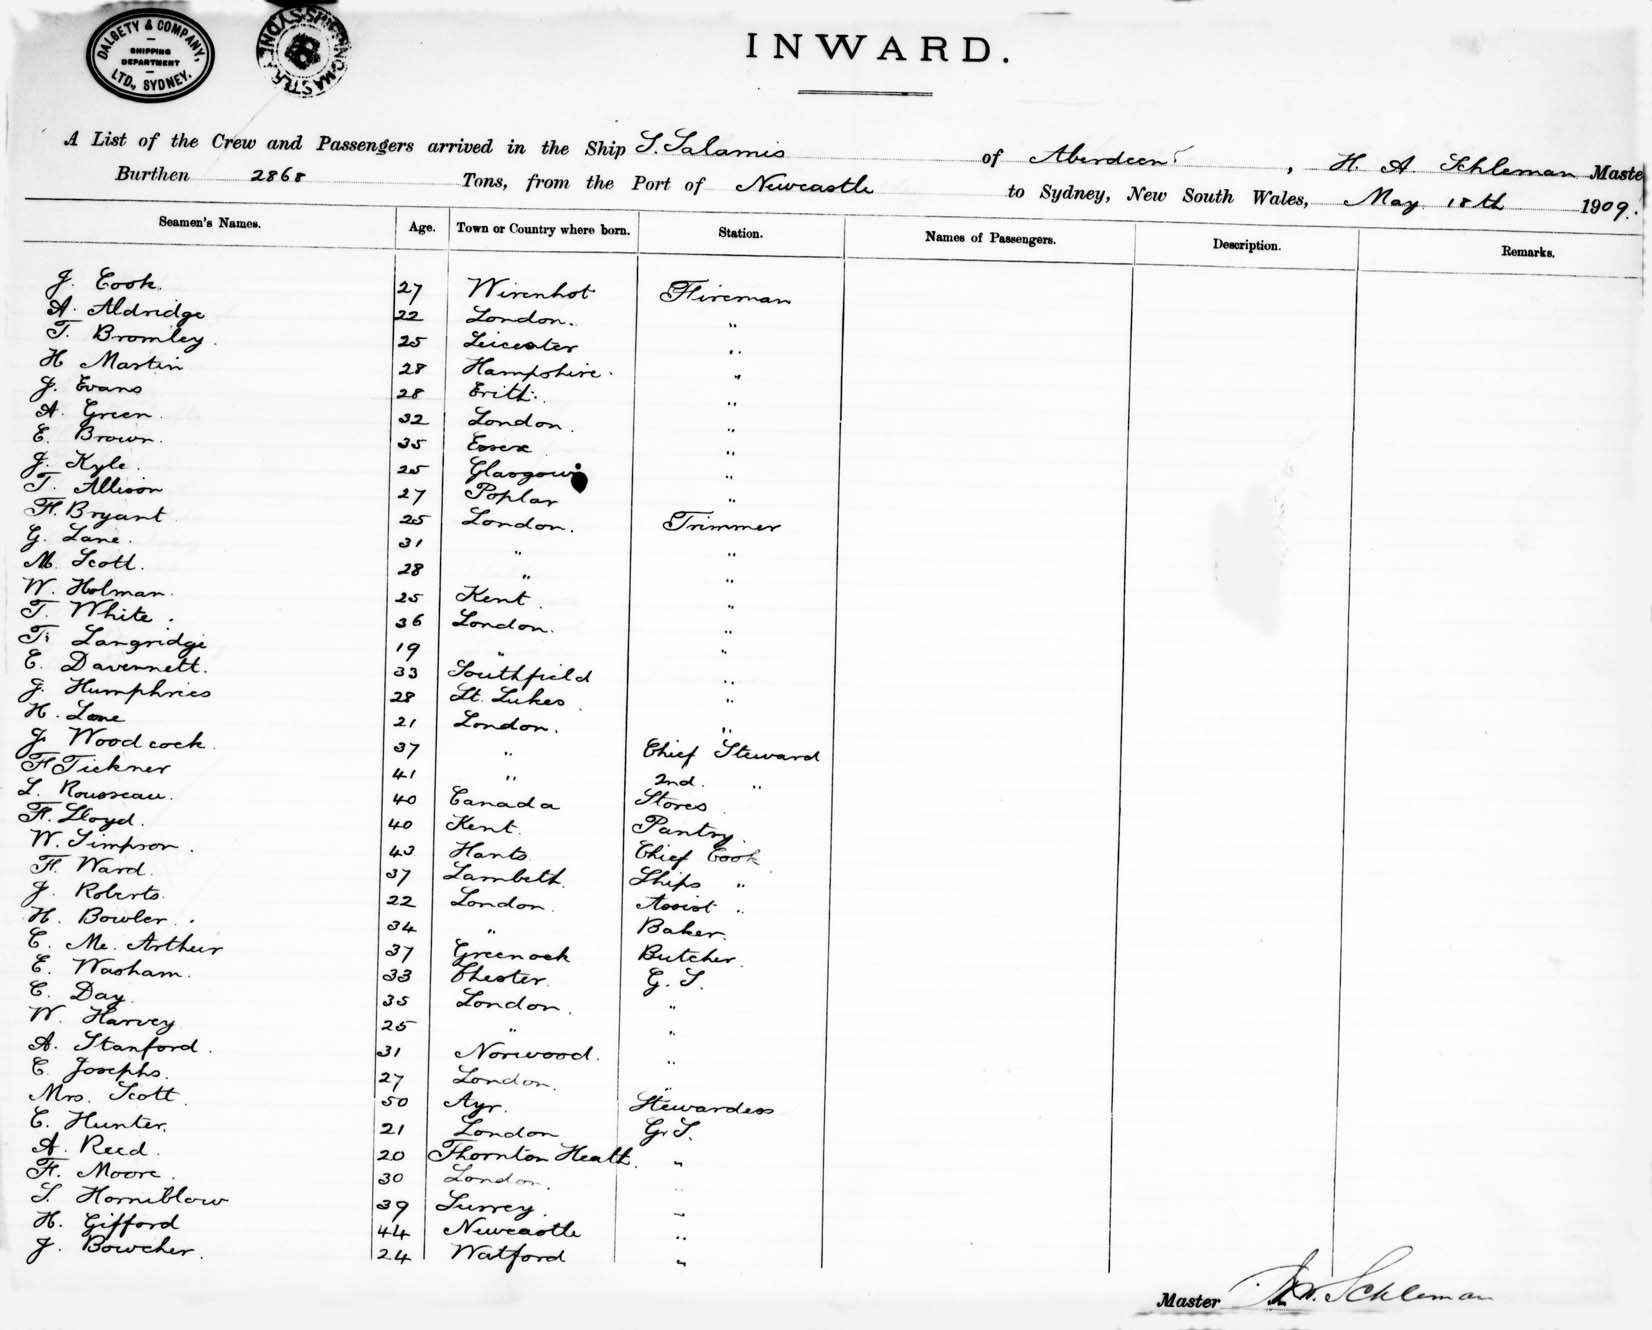 DALGETY & COMPANY, LTD., SYDNEY. SHIPPING DEPARTMENT
INWARD.
A List of the Crew and Passengers arrived in the Ship S. Salamis of Aberdeen, H. A. Schleman Maste
Burthen 2868 Tons, from the Port of Newcastle to Sydney, New South Wales, May 18th 1909.
Seamen's Names. Age. Town or Country where born. Station. Names of Passengers. Description. Remarks.
J. Cook. 27 Wivenhot Fireman
A. Aldridge 22 London. "
T. Bromley. 25 Leicester "
H Martin 28 Hampshire. "
J. Evans 28 Erith. "
A. Green. 32 London. "
E. Brown. 35 Essex "
J. Kyle. 25 Glasgow "
T. Allison 27 Poplar "
F. Bryant 25 London. Trimmer
G. Lane. 31 " "
M. Scott. 28 " "
W. Holman. 25 Kent. "
T. White. 36 London. "
T. Langridge 19 " "
E. Davennett. 33 Southfield "
J. Humphries 28 St. Lukes. "
H. Lane 21 London. "
J. Woodcock. 37 " Chief Steward
F Tickner 41 " 2nd. "
L. Rousseau. 40 Canada Stores
F. Lloyd. 40 Kent. Pantry.
W. Simpson. 43 Hants Chief Cook
F. Ward. 37 Lambeth. Ships "
J. Roberts. 22 London. Assist "
H. Bowler. 34 " Baker.
C. Mc. Arthur 37 Greenock Butcher.
E. Washam. 33 Chester. G. S.
C. Day. 35 London. "
W. Harvey 25 " "
A. Stanford. 31 Norwood. "
C. Josephs. 27 London. "
Mrs. Scott. 50 Ayr. Stewardess
C. Hunter. 21 London G. S.
A. Reed. 20 Thornton Heath. "
F. Moore. 30 London. "
S. Horniblow 39 Surrey. "
H. Gifford 44 Newcastle "
J. Bowcher. 24 Watford "
Master Schleman